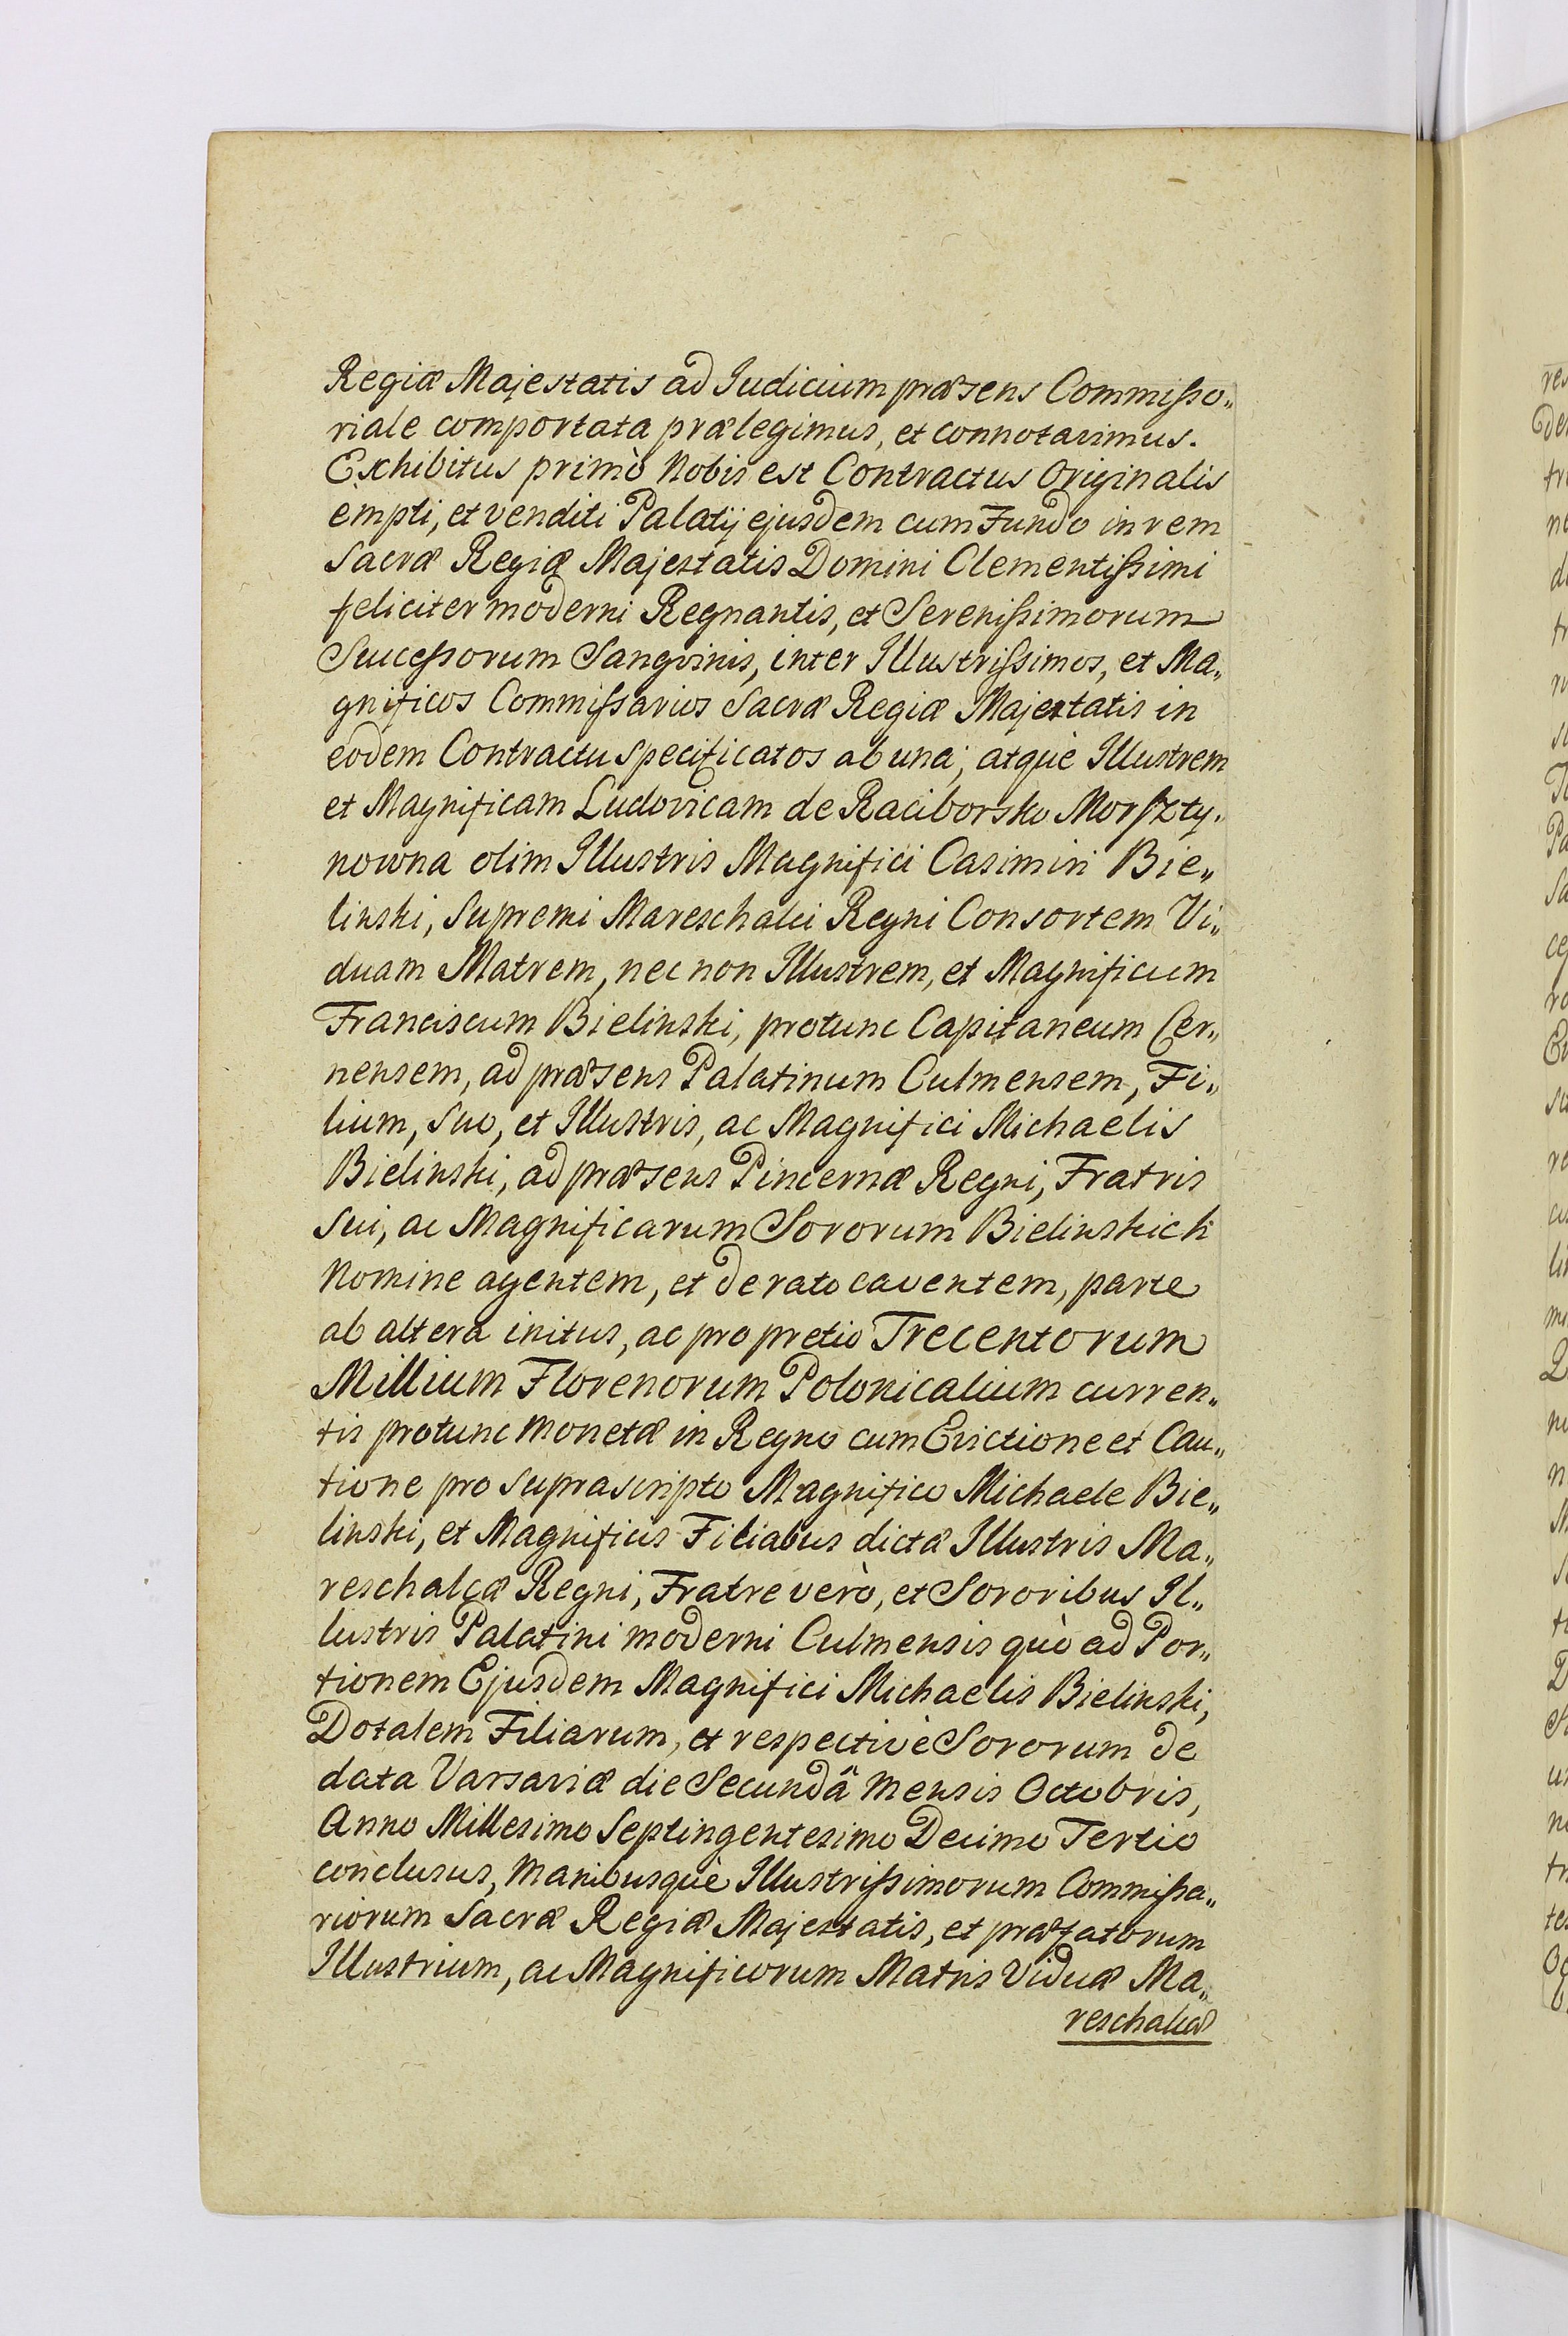 Regiæ Majestatis ad Judicium præsens Commisso„
riale comportata prælegimus, et connotavimus.
Exhibitus primò Nobis est Contractus Originalis
empti, et venditi Palatij ejusdem cum Fundo in rem
Sacræ Regiæ Majestatis Domini Clementissimi
feliciter moderni Regnantis, et Serenissimorum
Successorum Sangvinis, inter Illustrissimos, et Ma„
gnificos Commissarios Sacræ Regiæ Majestatis in
eodem Contractu specificatos ab una; atquè Illustrem
et Magnificam Ludovicam de Raciborsko Morszty„
nowna olim Illustris Magnifici Casimiri Bie„
linski, Supremi Mareschalci Regni Consortem Vi„
duam Matrem, nec non Illustrem, et Magnificum
Franciscum Bielinski, protunc Capitaneum Cer„
nensem, ad præsens Palatinum Culmensem, Fi„
lium, suo, et Illustris, ac Magnifici Michaelis
Bielinski, ad præsens Pincernæ Regni, Fratris
sui, ac Magnificarum Sororum Bielinskich
Nomine agentem, et de rato caventem, parte
ab altera initus, ac pro pretio Trecentorum
Millium Florenorum Polonicalium curren„
tis protunc Monetæ in Regno cum Evictione et Cau„
tione pro suprascripto Magnifico Michaele Bie„
linski, et Magnificis Filiabus dictæ Illustris Ma„
reschalcæ Regni, Fratre verò, et Sororibus Il„
lustris Palatini moderni Culmensis quò ad Por„
tionem Ejusdem Magnifici Michaelis Bielinski,
Dotalem Filiarum, et respectivè Sororum de
data Varsaviæ die Secundâ Mensis Octobris,
Anno Millesimo Septingentesimo Decimo Tertio
conclusus, Manibusquè Illustrissimorum Commissa„
riorum Sacræ Regiæ Majestatis, et præfatorum
Illustrium, ac Magnificorum Matris Viduæ Ma„
reschalcæ